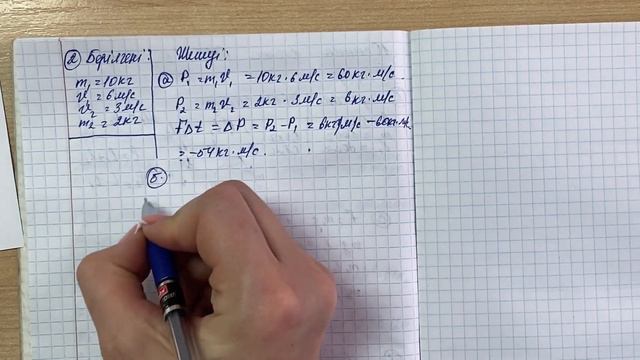 ② Берілгені:
m₁ = 10кг
υ₁ = 6 м/с
υ₂ = 3 м/с
m₂ = 2кг
Шешуі:
ⓐ P₁ = m₁υ₁ = 10кг · 6 м/с = 60кг · м/с
P₂ = m₂υ₂ = 2кг · 3м/с = 6кг · м/с
FΔt = ΔP = P₂ - P₁ = 6кг м/с - 60кг м/с
= -54 кг · м/с.
Б.